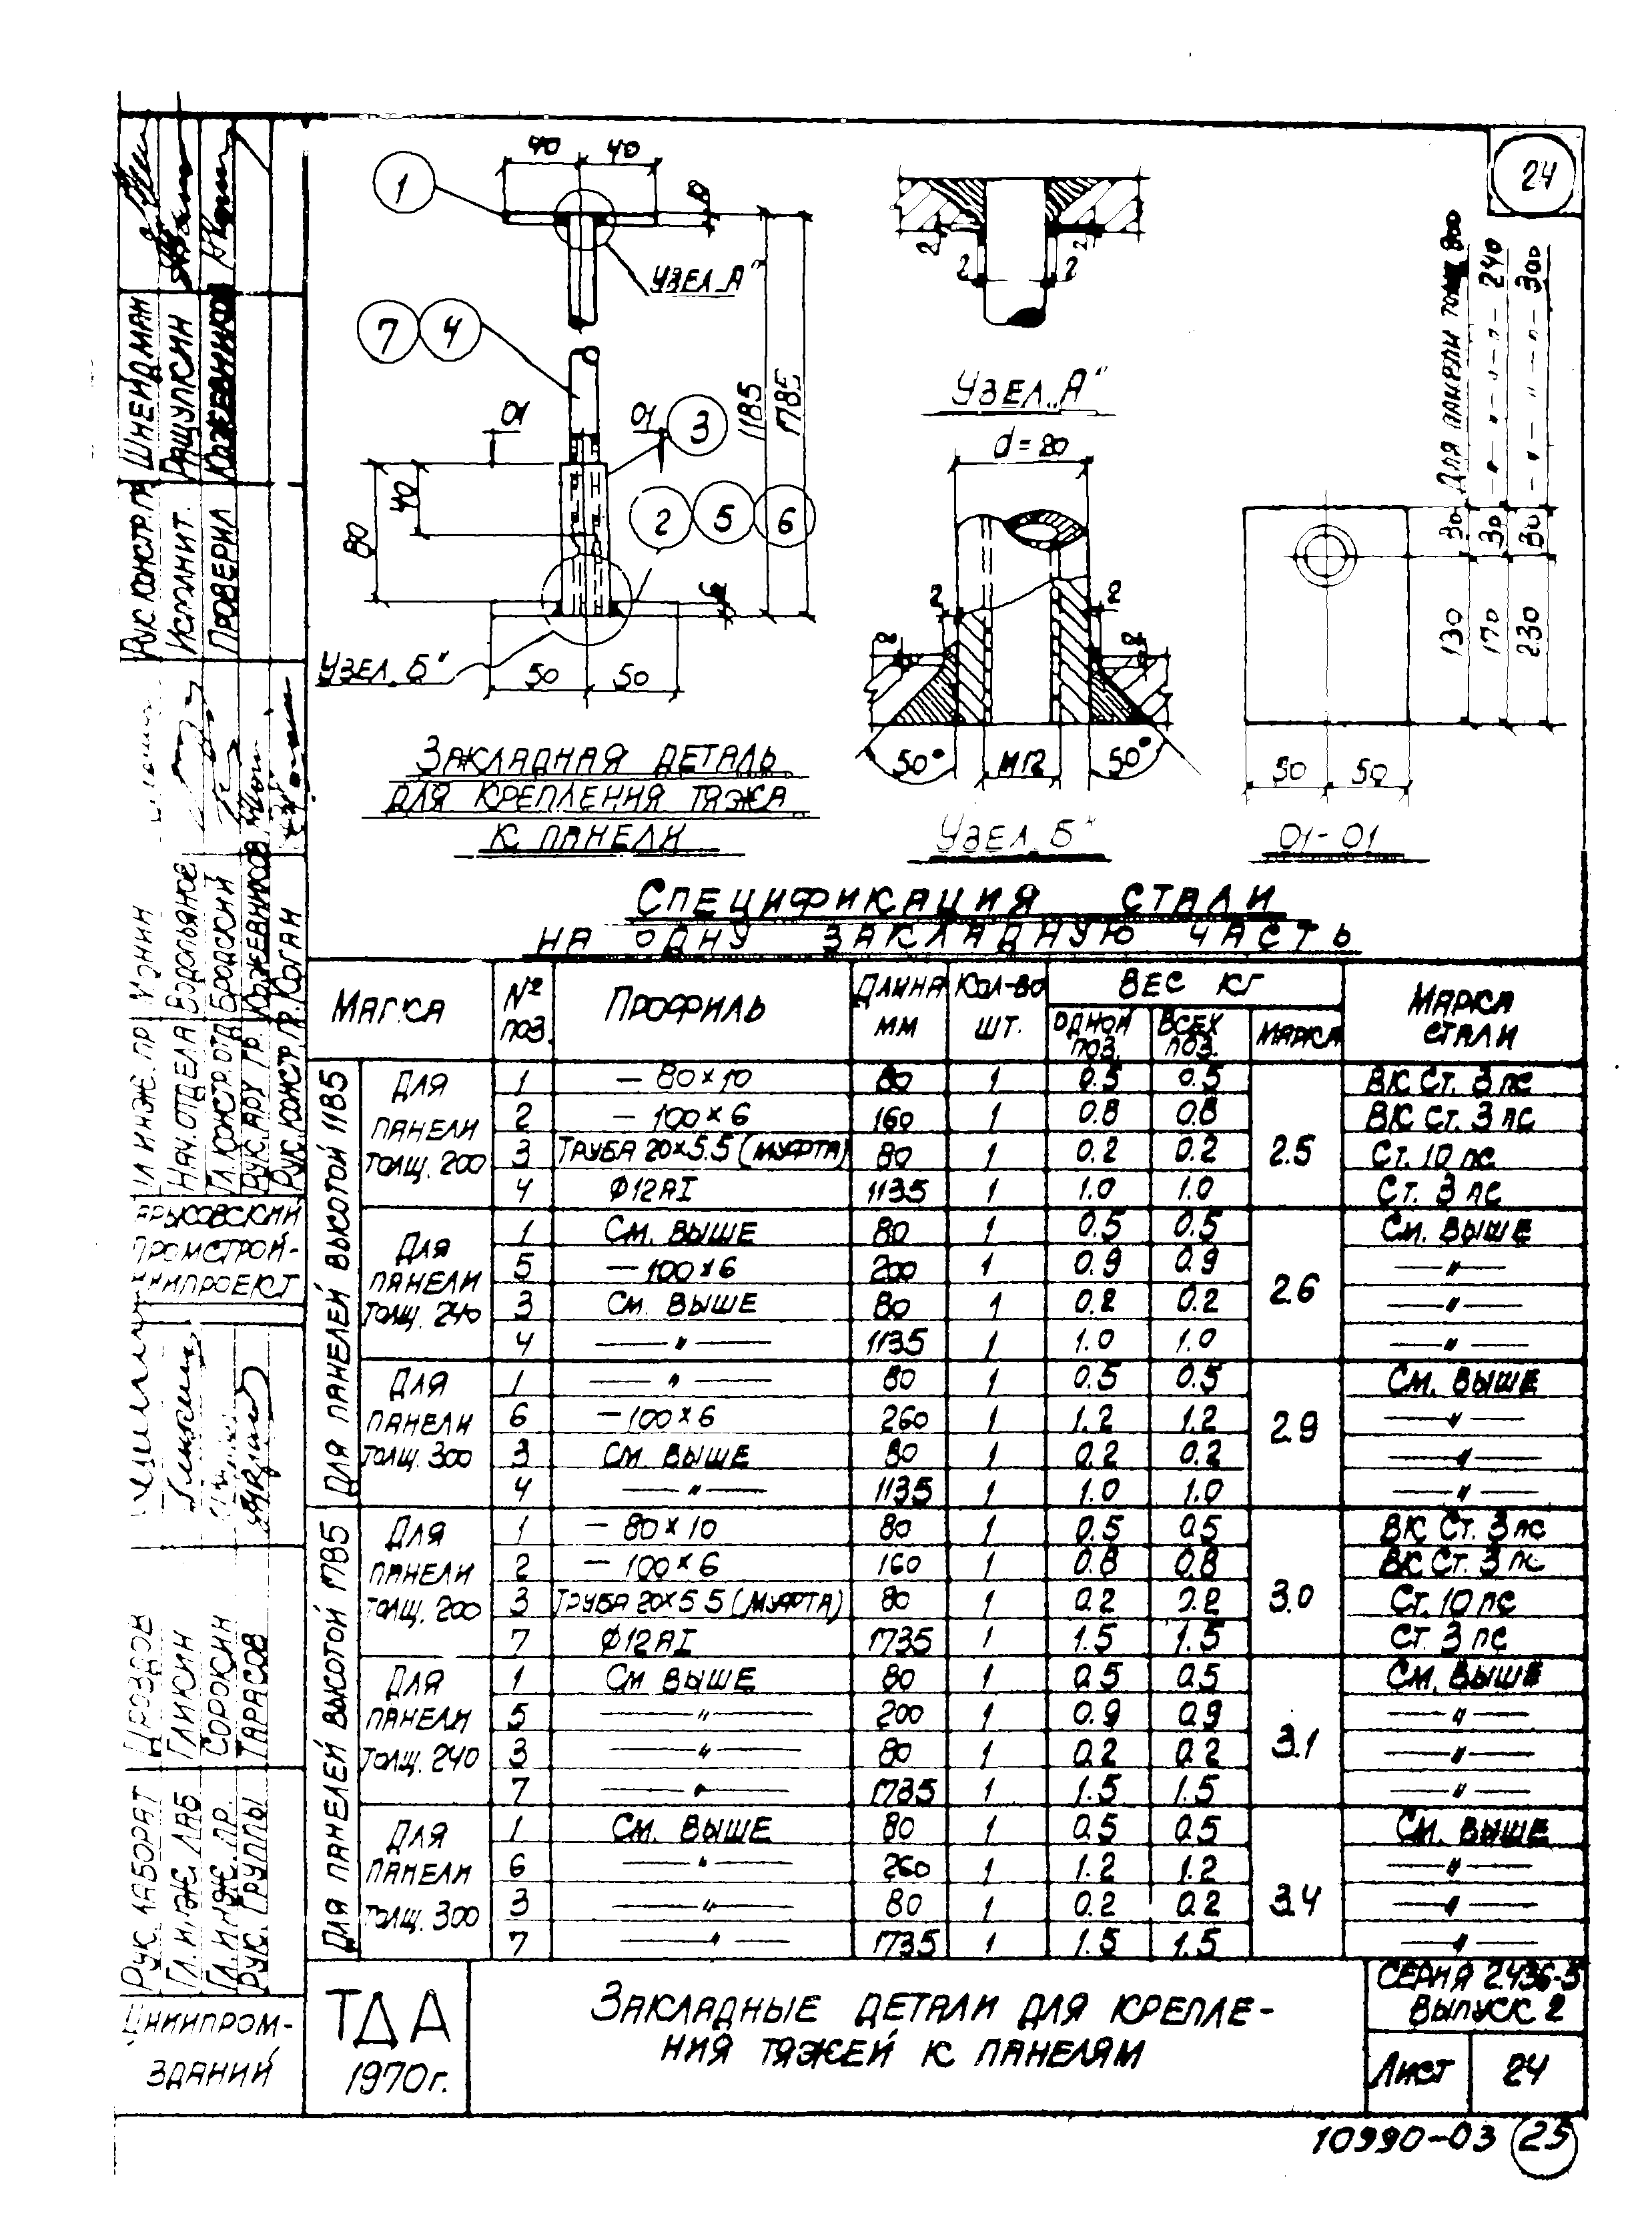 24
40 40
1
10
УЗЕЛ „А"
7 4
01 01
3
1185
1785
80
40
2 5 6
6
УЗЕЛ „Б"
50 50
ЗАКЛАДНАЯ ДЕТАЛЬ
ДЛЯ КРЕПЛЕНИЯ ТЯЖА
К ПАНЕЛИ
2 2
2 2
УЗЕЛ „А"
d=20
2 2
2 2
50° М12 50°
УЗЕЛ „Б"
ДЛЯ ПАНЕЛИ ТОЛЩ 200
— „ — „ — „ — 240
— „ — „ — „ — 300
30 30 30
130 170 230
50 50
01-01
СПЕЦИФИКАЦИЯ СТАЛИ
НА ОДНУ ЗАКЛАДНУЮ ЧАСТЬ
МАРКА № ПОЗ. ПРОФИЛЬ ДЛИНА ММ КОЛ-ВО ШТ. ВЕС КГ МАРКА СТАЛИ
ОДНОЙ ПОЗ. ВСЕХ ПОЗ. МАРКА
ДЛЯ ПАНЕЛЕЙ ВЫСОТОЙ 1185
ДЛЯ ПАНЕЛИ ТОЛЩ. 200 2.5
1 — 80×10 80 1 0.5 0.5 ВК Ст. 3 пс
2 — 100×6 160 1 0.8 0.8 ВК Ст. 3 пс
3 ТРУБА 20×5.5 (МУФТА) 80 1 0.2 0.2 Ст. 10 пс
4 Ф12АI 1135 1 1.0 1.0 Ст. 3 пс
ДЛЯ ПАНЕЛИ ТОЛЩ. 240 2.6
1 СМ. ВЫШЕ 80 1 0.5 0.5 СМ. ВЫШЕ
5 — 100×6 200 1 0.9 0.9 — „ —
3 СМ. ВЫШЕ 80 1 0.2 0.2 — „ —
4 — „ — 1135 1 1.0 1.0 — „ —
ДЛЯ ПАНЕЛИ ТОЛЩ. 300 2.9
1 — „ — 80 1 0.5 0.5 СМ. ВЫШЕ
6 — 100×6 260 1 1.2 1.2 — „ —
3 СМ. ВЫШЕ 80 1 0.2 0.2 — „ —
4 — „ — 1135 1 1.0 1.0 — „ —
ДЛЯ ПАНЕЛЕЙ ВЫСОТОЙ 1785
ДЛЯ ПАНЕЛИ ТОЛЩ. 200 3.0
1 — 80×10 80 1 0.5 0.5 ВК Ст. 3 пс
2 — 100×6 160 1 0.8 0.8 ВК Ст. 3 пс
3 ТРУБА 20×5.5 (МУФТА) 80 1 0.2 0.2 Ст. 10 пс
7 Ф12АI 1735 1 1.5 1.5 Ст. 3 пс
ДЛЯ ПАНЕЛИ ТОЛЩ. 240 3.1
1 СМ. ВЫШЕ 80 1 0.5 0.5 СМ. ВЫШЕ
5 — „ — 200 1 0.9 0.9 — „ —
3 — „ — 80 1 0.2 0.2 — „ —
7 — „ — 1735 1 1.5 1.5 — „ —
ДЛЯ ПАНЕЛИ ТОЛЩ. 300 3.4
1 СМ. ВЫШЕ 80 1 0.5 0.5 СМ. ВЫШЕ
6 — „ — 260 1 1.2 1.2 — „ —
3 — „ — 80 1 0.2 0.2 — „ —
7 — „ — 1735 1 1.5 1.5 — „ —
ТДА
1970г.
ЗАКЛАДНЫЕ ДЕТАЛИ ДЛЯ КРЕПЛЕ-
НИЯ ТЯЖЕЙ К ПАНЕЛЯМ
СЕРИЯ 2.436-5
ВЫПУСК 2
ЛИСТ 24
10990-03 25
РУК. КОНСТР. ГР. ШНЕЙДМАН
ИСПОЛНИТ. РАЩУПКИН
ПРОВЕРИЛ КОЖЕВНИКОВ
ГЛ. ИНЖ. ПР. МОНИН
НАЧ. ОТДЕЛА ВОДОЛЬЯНОЕ
ГЛ. КОНСТР. ОТД БРОДСКИЙ
РУК. АРХ. ГР. КОЖЕВНИКОВ
РУК. КОНСТР. ГР. КОГАН
ПРОМСТРОЙ-
НИИПРОЕКТ
РУК. ЛАБОРАТ ДРОЗДОВ
ГЛ. ИНЖ. ЛАБ ГЛИКИН
ГЛ. ИНЖ. ПР. СОРОКИН
РУК. ГРУППЫ ТАРАСОВ
ЦНИИПРОМ-
ЗДАНИЙ